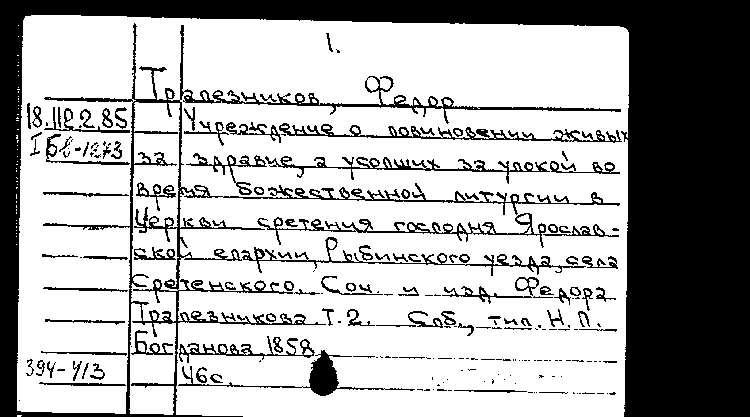 1.
Трапезников, Федор
18.112.2.85
Учреждение о повиновении живых
I Бв-1273
за здравие, а усопших за упокой во
время божественной литургии в
Церкви сретения господня Ярослав-
ской епархии, Рыбинского уезда, села
Сретенского. Соч. и изд. Федора
Трапезникова. Т.2. Спб., тип. Н.П.
Богданова, 1858.
394-413
46с.